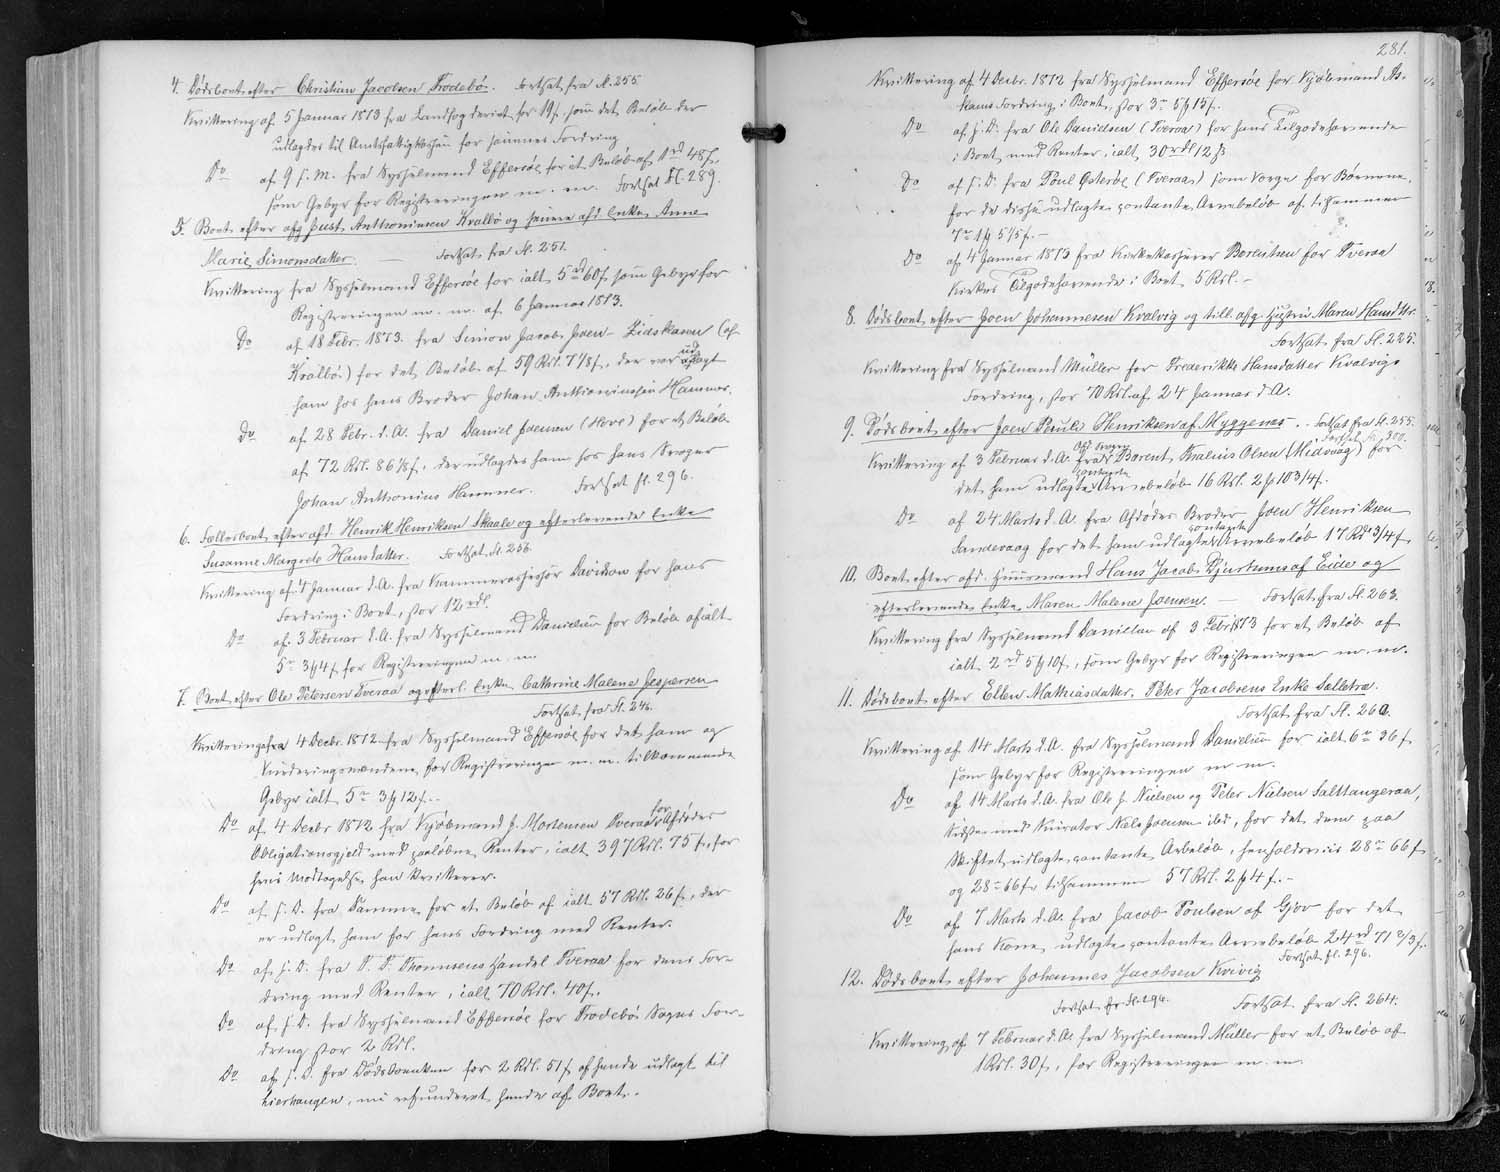 4. Dødsboet efter Christian Jacobsen Frodebø. Fortsat fra fl. 255.
Kvittering af 5 Januar 1873 fra Landfogderiet for 19 f, som det Beløb der
udlagdes til Amtsfattigkassen for sammes Fordring
Do af 9 s. M. fra Sysselmand Effersøe for et Beløb af 1 rd 48 f,
som Gebyr for Registreringen m. m. Fortsat fl. 289.
5. Boet efter afg Just Anthoniusen Kvalbø og senere afd. Enke Anne
Marie Simonsdatter. — Fortsat fra fl. 251.
Kvittering fra Sysselmand Effersøe for ialt 5 rd 60 f som Gebyr for
Registreringen m. m. af 6 Januar 1873.
Do af 18 Febr. 1873. fra Simon Jacobs Joen Zidskasen (af
Kvalbø) for det Beløb af 59 Rdl. 7 1/8 f., der var udlagt
ham hos hans Broder Johan Anthoniussen Hammer.
Do af 28 Febr. d. A. fra Daniel Joensen (Hove) for et Beløb
af 72 Rdl. 86 1/8 f., der udlagdes ham hos hans Svoger
Johan Anthonius Hammer. Fortsat fl. 296.
6. Fællesboet efter afd. Henrik Henriksen Skaale og efterlevende Enke
Susanne Margrete Hansdatter. Fortsat fl. 256.
Kvittering af 7 Januar d. A. fra Kammerassessor Davidson for hans
Fordring i Boet, stor 12 rdl.
Do af 3 Februar d. A. fra Sysselmand Danielsen for Beløb af ialt
5 rd 3 ß 4 f for Registreringen m. m.
7. Boet efter Ole Petersen Tveraa og efterl. Enke Cathrine Malene Jespersen
Fortsat fra fl. 246.
Kvittering fra 4 Decbr. 1872 fra Sysselmand Effersøe for det ham og
Vurderingsmændene for Registreringen m. m. tilkommende
Gebyr ialt 5 rd 3 ß 12 f.
Do af 4 Decbr 1872 fra Kjøbmand J. Mortensen Tveraa for Afdødes
Obligationsgjeld med paaløbne Renter, ialt 397 Rdl. 75 f, for
hvis Modtagelse han kvitterer.
Do af s. D. fra Samme for et Beløb af ialt 57 Rdl. 26 f., der
er udlagt ham for hans Fordring med Renter.
Do af s. D. fra T. F. Thomsens Handel Tveraa for dens For-
dring med Renter, ialt 70 Rdl. 40 f.
Do af s. D. fra Sysselmand Effersøe for Frodebø Sogns For-
dring stor 2 Rdl.
Do af s. D. fra Dødsboenken for 2 Rdl. 51 f af hende udlagt til
, nu refunderet hende af Boet.
281.
Kvittering af 4 Decbr. 1872 fra Sysselmand Effersøe for Kjøbmand As-
kams Fordring i Boet, stor 3 rd 5 ß 15 f.
Do af s. D. fra Ole Danielsen (Tveraa) for hans Tilgodehavende
i Boet med Renter, ialt 30 rdl 12 ß
Do af s. D. fra Poul Østerøe (Tveraa) som Værge for Børnene
for de disse udlagte contante Arvebeløb af tilsammen
7 rd 1 ß 5 1/5 f. —
Do af 4 Januar 1873 fra Kirkekasserer Berentsen for Tveraa
Kirkes Tilgodehavende i Boet 5 Rdl. —
8. Dødsboet efter Joen Johannesen Kvalvig og till. afg. Hustru Maren Hansd ttr.
Fortsat fra fl. 225.
Kvittering fra Sysselmand Müller for Frederikke Hansdatter Kvalvigs
Fordring, stor 70 Rdl. af 24 Januar d. A.
9. Dødsboet efter Joen Poul Henriksen af Myggenæs. Fortsat fra fl. 255.
Fortsat fl. 300.
Kvittering af 3 Februar d. A. fra Afd. Svoger Berent Kralius Olsen (Midvaag) for
det ham udlagte contante Arvebeløb 16 Rdl. 2 ß 10 3/4 f.
Do af 24 Marts d. A. fra Afdødes Broder Joen Henriksen
Sandevaag for det ham udlagte contante Arvebeløb 17 Rd 3/4 f
10. Boet efter afd. Huusmand Hans Jacob Djurhuus af Eide og
efterlevende Enke Maren Malene Joensen. — Fortsat fra fl. 263.
Kvittering fra Sysselmand Danielsen af 3 Febr 1873 for et Beløb af
ialt 2 rd 5 ß 10 f., som Gebyr for Registreringen m. m.
11. Dødsboet efter Ellen Mathiasdatter, Peter Jacobsens Enke Selletræ.
Fortsat fra fl. 260.
Kvittering af 14 Marts d. A. fra Sysselmand Danielsen for ialt 6 rd 36 f
som Gebyr for Registreringen m m.
Do af 14 Marts d. A. fra Ole J. Nielsen og Peter Nielsen Salttangeraa,
Sidste med Curator Niels Joensen ibd., for det dem paa
Skiftet udlagte contante Arbeløb, henholdsviis 28 rd 66 f
og 28 rd 66 f tilsammen 57 Rdl. 2 ß 4 f. —
Do af 7 Marts d. A. fra Jacob Poulsen af Gjov for det
hans Kone udlagte contante Arvebeløb 24 rd 71 2/3 f.
Fortsat fl. 296.
12. Dødsboet efter Johannes Jacobsen Kvivig
Fortsat fr fl. 296. Fortsat fra fl. 264.
Kvittering af 7 Februar d. A. fra Sysselmand Müller for et Beløb af
1 Rdl. 30 f, for Registreringen m. m